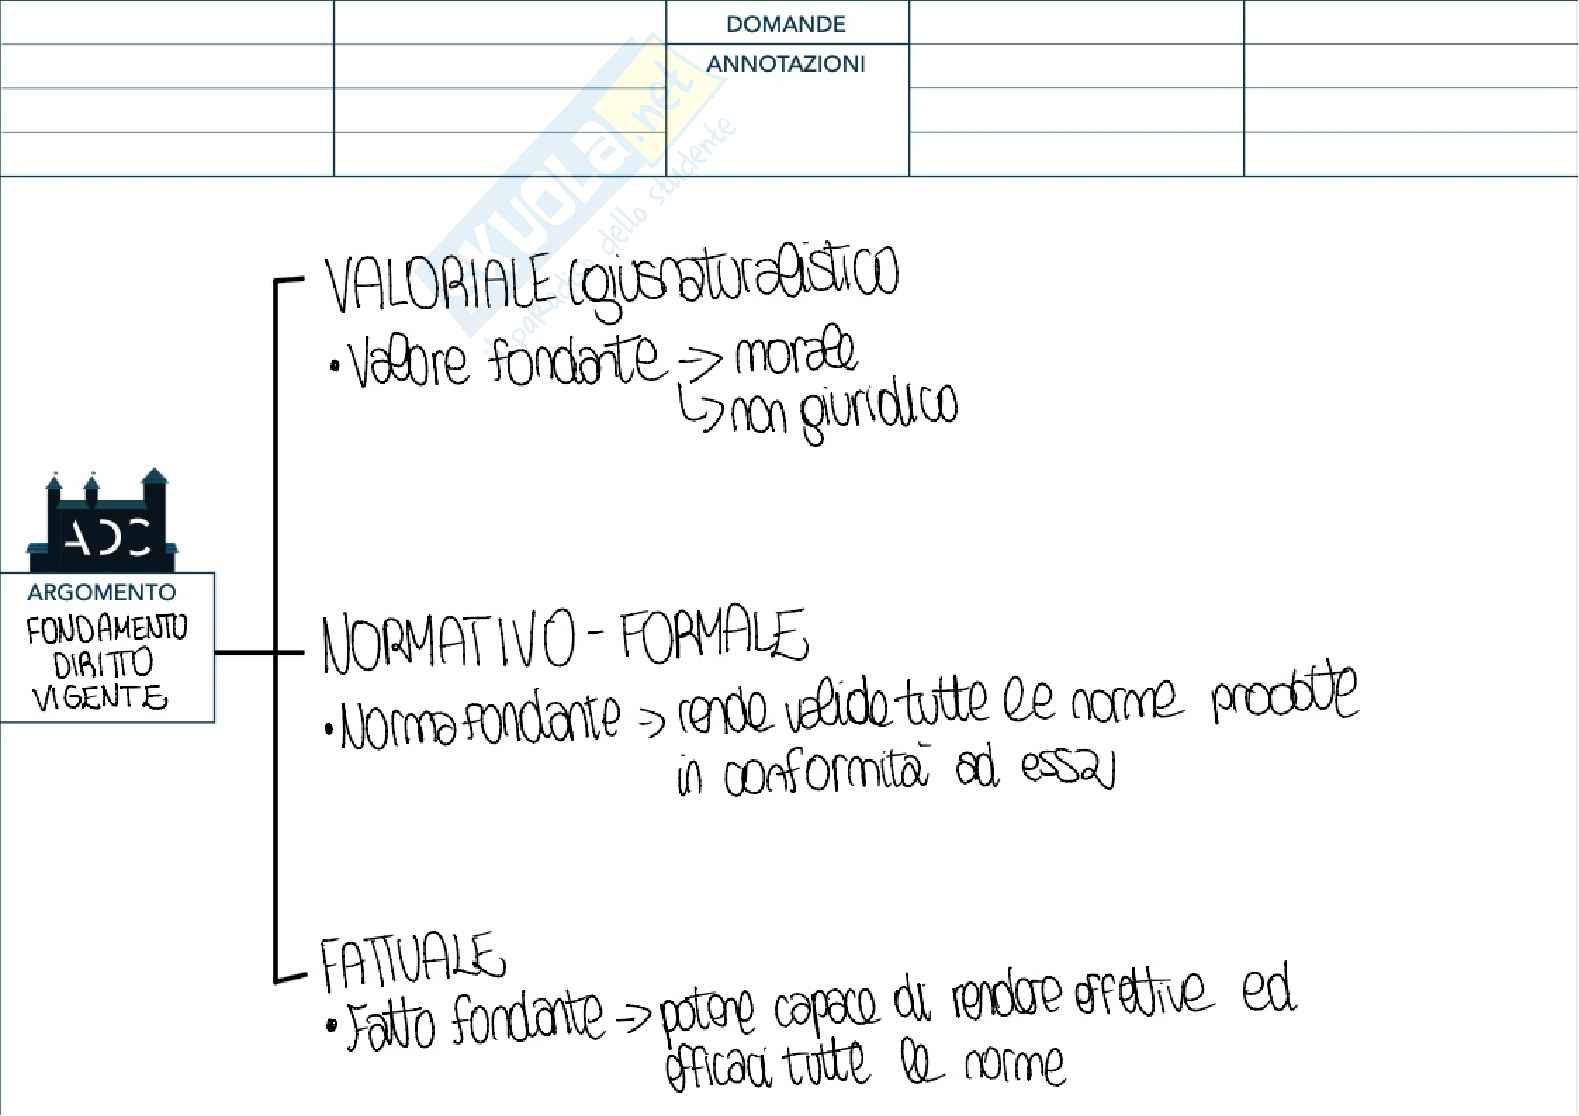 DOMANDE
ANNOTAZIONI
SKUOLA.net
il paradiso dello studente
VALORIALE (giusnaturalistico
• Valore fondante -> morale
↳ non giuridico
ADC
ARGOMENTO
FONDAMENTO
DIRITTO
VIGENTE
NORMATIVO - FORMALE
• Norma fondante -> rende valide tutte le norme prodotte
in conformità ad essa
FATTUALE
• Fatto fondante -> potere capace di rendere effettive ed
efficaci tutte le norme